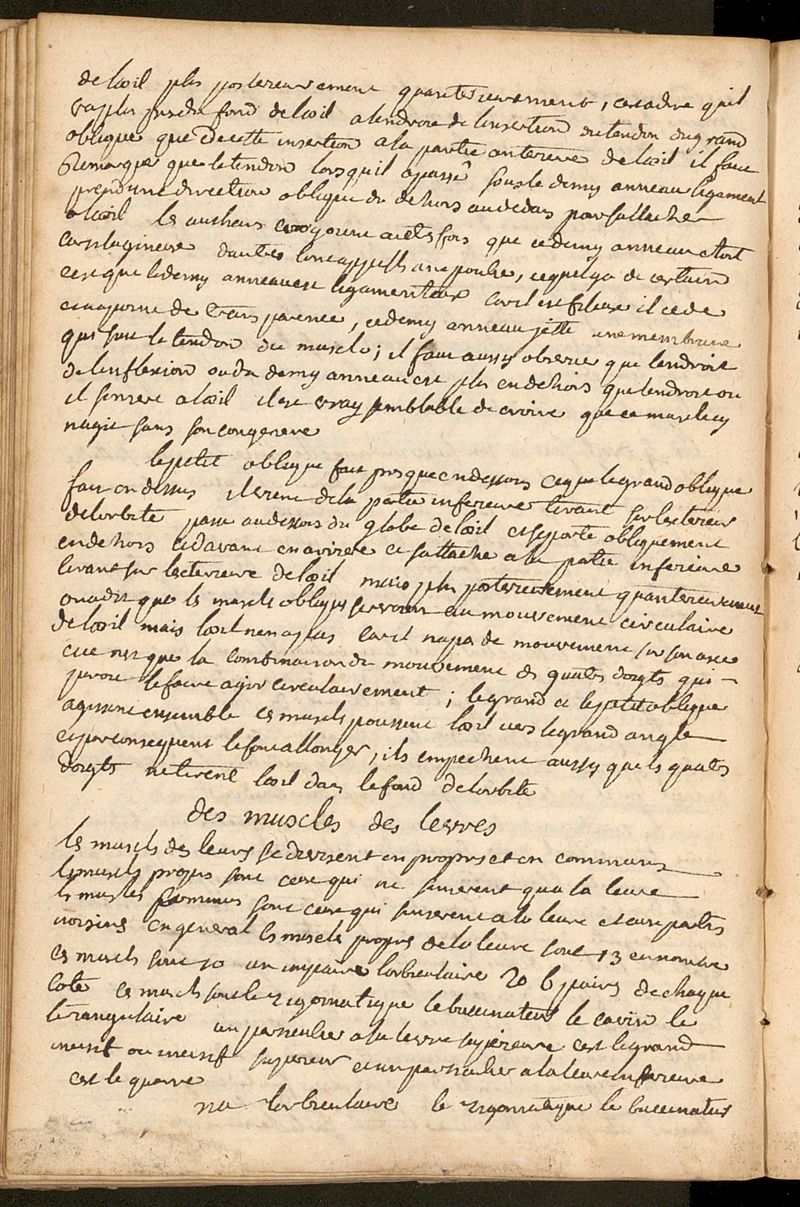 de loeil plus posterieurement quanterieurement, cestadire quil
va plus pres du fond de loeil a lendroit de linsertion du tendon du grand
oblique que de cette insertion a la partie anterieure de loeil il faut
Remarquer que le tendon lorsquil a passé sous le demy anneau ligament
prend une direction oblique de dehors au dedans pour sattacher
a loeil les autheurs que ce demy anneau etoit
cartilagineux dautres lont appellé une poulie, ce quil y a de certain
cest que le demy anneau est ligamenteux car il est fibreux il cede
transparence, ce demy anneau jette une membrane
qui suit le tendon du muscle; il faut aussy observer que lendroit
de linflexion ou du demy anneau est plus en dehors que lendroit ou
il sinsere a loeil il est vray semblable de croire que ce muscle cy
nagit sans son congenere
le petit oblique fait presque en dessous ce que le grand oblique
fait en dessus il vient de la partie inferieure tirant sur lexterieur
de lorbite passe au dessous du globe de loeil et se porte obliquement
en dehors et davant en arriere et sattache a la partie inferieure
tirant sur lexterieure de loeil mais plus posterieurement quanterieurement
on a dit que les muscles obliques servoient au mouvement circulaire
de loeil mais loeil nen a pas car il na pas de mouvement sur son axe
ce nest que la combinaison du mouvement des quatre droits qui
paroit le faire agir circulairement; le grand et le petit oblique
agissant ensemble ces muscles poussent loeil vers le grand angle
et par consequent le font allonger, ils empechent aussy que les quatre
droits ne tirent loeil dans le fond de lorbite
des muscles des levres
les muscles des levres se divisent en propres et en communs
les muscles propres sont ceux qui ne sinserent qua la levre
les muscles communs sont ceux qui sinserent a la levre et aux parties
voisines en general les muscles propres de la levre sont 13 en nombre
ces muscles sont 1o un impaire lorbiculaire 2o 6 pairs de chaque
coté ces muscles sont le zigomatique le buccinateur le canin le
triangulaire un particulier a la levre superieure cest le grand
incisif ou incisif superieur et un particulier a la levre inferieure
cest le quarré
lorbiculaire le zigomatique le buccinateur